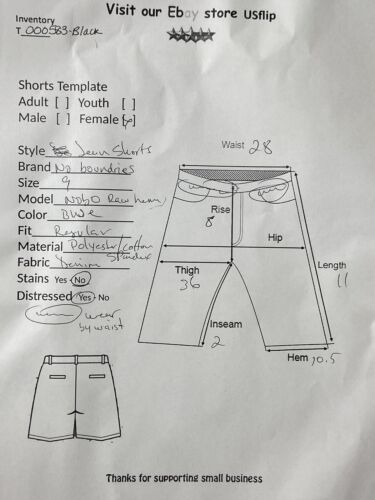 Visit our Ebay store USflip
Inventory
T 000583-Black
Shorts Template
Adult [ ] Youth [ ]
Male [ ] Female [ ]
Style Jean Shorts
Brand No boundries
Size 9
Model NOBO Raw hem
Color Blue
Fit Regular
Material Polyester/cotton
Spandex
Fabric Denim
Stains Yes - No
Distressed Yes - No
wear
by waist
Waist 28
Rise
8
Hip
Thigh
36
Length
11
Inseam
2
Hem 10.5
Thanks for supporting small business